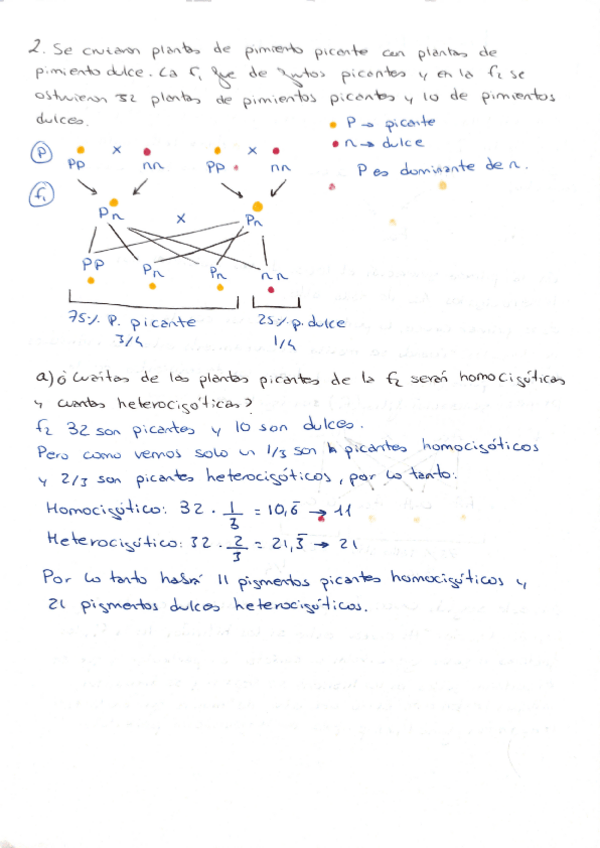 2. Se cruzaron plantas de pimiento picante con plantas de
pimiento dulce. La f1 fue de frutos picantes y en la f2 se
obtuvieron 32 plantas de pimientos picantes y 10 de pimientos
dulces.
P → picante
n → dulce
P es dominante de n.
P
PP x nn
PP x nn
f1
Pn x Pn
PP Pn Pn nn
75% P. picante 25% p. dulce
3/4 1/4
a) ¿Cuántas de las plantas picantes de la f2 serán homocigóticas
y cuantas heterocigóticas?
f2 32 son picantes y 10 son dulces.
Pero como vemos solo un 1/3 son picantes homocigóticos
y 2/3 son picantes heterocigóticos, por lo tanto:
Homocigótico: 32 · 1/3 = 10,6 → 11
Heterocigótico: 32 · 2/3 = 21,3 → 21
Por lo tanto habrá 11 pigmentos picantes homocigóticos y
21 pigmentos dulces heterocigóticos.